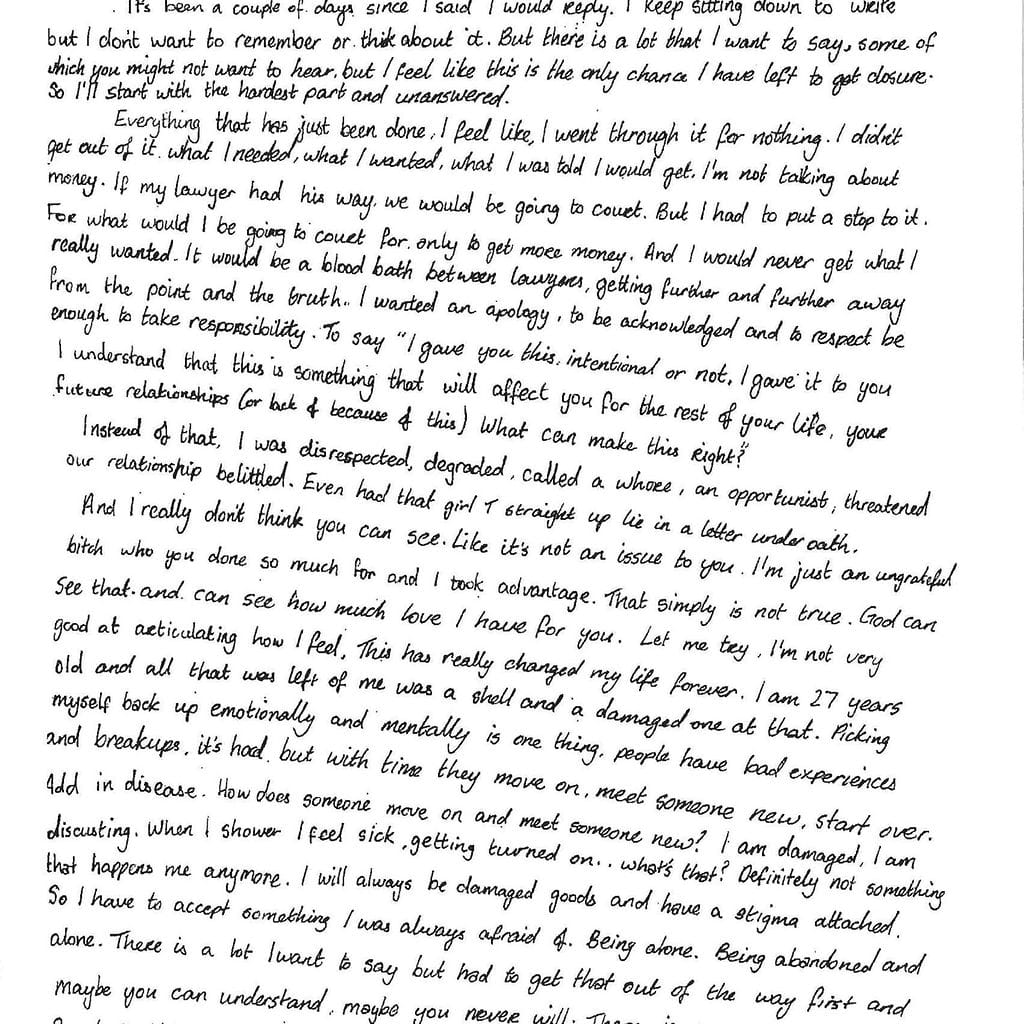 . It's been a couple of days since I said I would reply. I keep sitting down to write
but I don't want to remember or think about it. But there is a lot that I want to say, some of
which you might not want to hear, but I feel like this is the only chance I have left to get closure.
So I'll start with the hardest part and unanswered.
Everything that has just been done, I feel like, I went through it for nothing. I didn't
get out of it. what I needed, what I wanted, what I was told I would get. I'm not talking about
money. If my lawyer had his way, we would be going to court. But I had to put a stop to it.
For what would I be going to court for. only to get more money. And I would never get what I
really wanted. It would be a blood bath between lawyers, getting further and further away
from the point and the truth.. I wanted an apology, to be acknowledged and to respect be
enough to take responsibility. To say "I gave you this. intentional or not, I gave it to you
I understand that this is something that will affect you for the rest of your life, your
future relationships (or lack of because of this) What can make this Right?"
Instead of that, I was disrespected, degraded, called a whore, an opportunist, threatened
our relationship belittled. Even had that girl T straight up lie in a letter under oath.
And I really don't think you can see. Like it's not an issue to you. I'm just an ungrateful
bitch who you done so much for and I took advantage. That simply is not true. God can
see that. and. can see how much love I have for you. Let me try, I'm not very
good at articulating how I feel, This has really changed my life forever. I am 27 years
old and all that was left of me was a shell and a damaged one at that. Picking
myself back up emotionally and mentally is one thing, people have bad experiences
and breakups, it's had. but with time they move on, meet someone new, start over.
Add in disease. How does someone move on and meet someone new? I am damaged, I am
discusting. When I shower I feel sick, getting turned on.. what's that? Definitely not something
that happens me anymore. I will always be damaged goods and have a stigma attached.
So I have to accept something I was always afraid of. Being alone. Being abandoned and
alone. There is a lot I want to say but had to get that out of the way first and
maybe you can understand, maybe you never will.